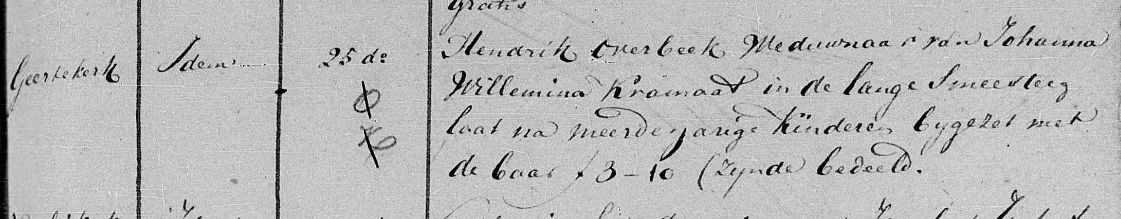 gratis
Geertekerk Idem 25 do Hendrik Overbeek Weduwnaar van Johanna
Willemina Kramaat in de lange Smeesteeg
laat na meerderjarige Kinderen bygezet met
de baar f 3-10 (Zynde bedeeld.